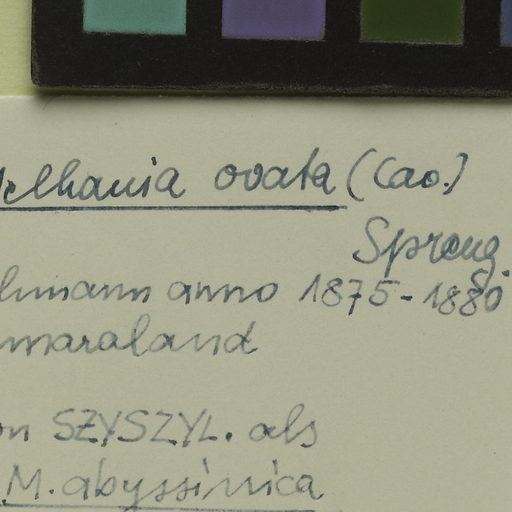 elhania ovata (Cav.)
Spreng.
hmann anno 1875-1880
maraland
on SZYSZYL. als
M. abyssinica